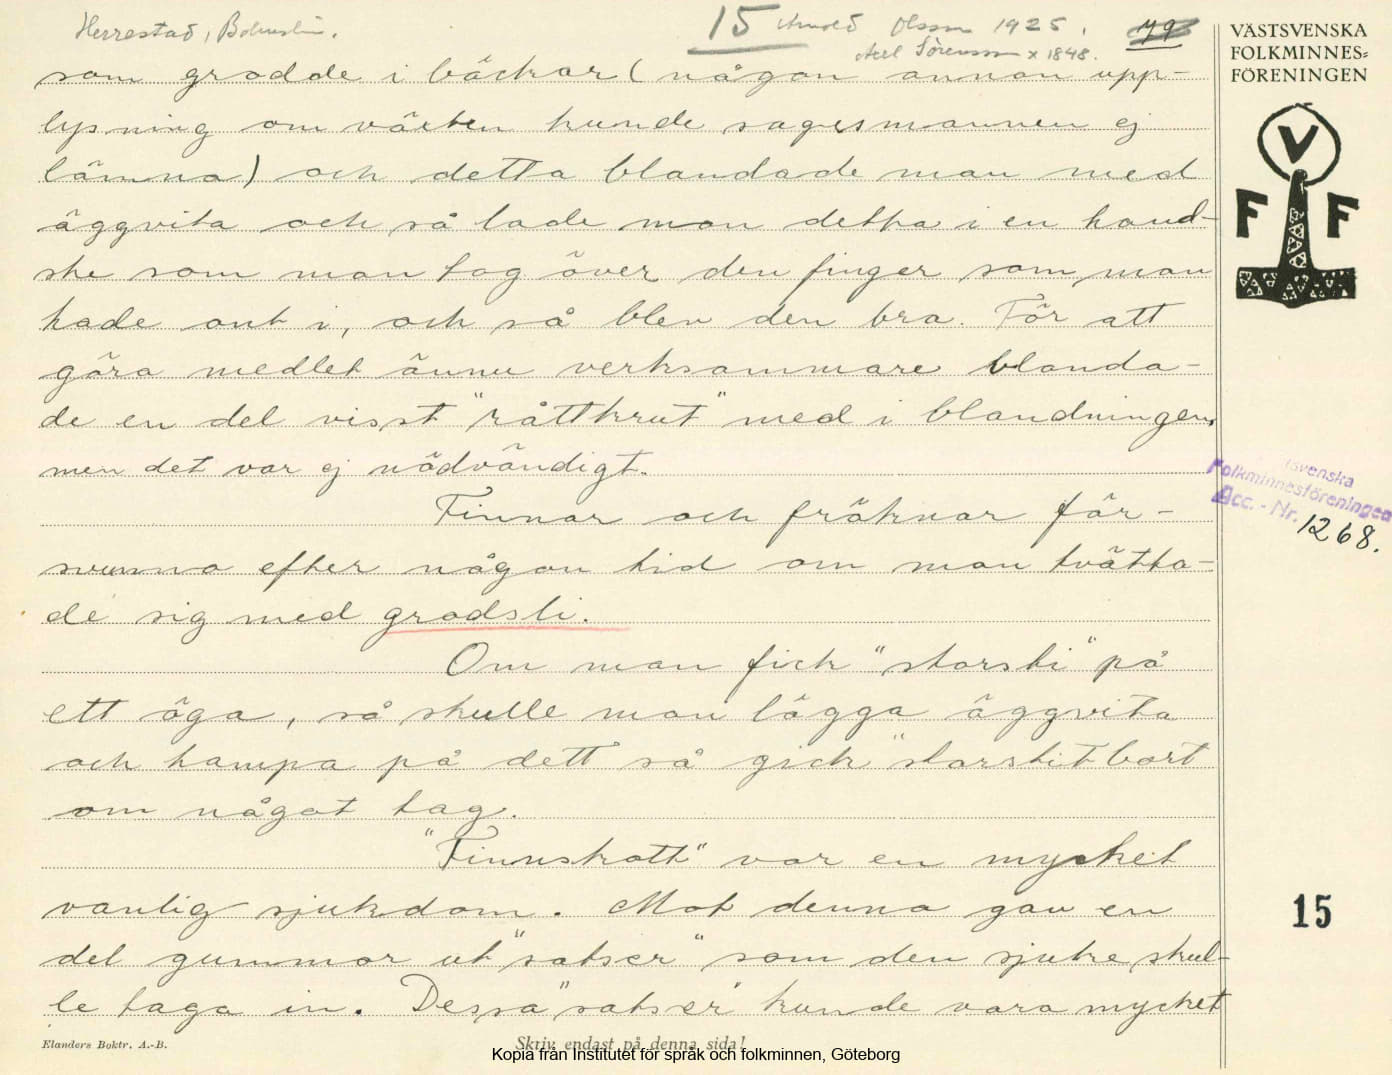 Herrestad, Bohuslän.
15 Arnold Olsson 1925.
Axel Sörensson x 1848.
VÄSTSVENSKA
FOLKMINNES=
FÖRENINGEN
V
F F
som grodde i bäckar (någon annan upp-
lysning om växten kunde sagesmannen ej
lämna) och detta blandade man med
äggvita och så lade man detta i en hand-
ske som man tog över den finger som man
hade ont i, och så blev den bra. För att
göra medlet ännu verksammare blanda-
de en del visst "råttkrut" med i blandningen,
men det var ej nödvändigt.
Finnar och fräknar för-
svunno efter någon tid om man tvätta-
de sig med grodsli.
Om man fick "starsti" på
ett öga, så skulle man lägga äggvita
och hampa på dett så gick "starstit bort
om något tag.
"Finnskott" var en mycket
vanlig sjukdom. Mot denna gav en
del gummor ut "satser" som den sjuke skul-
le taga in. Dessa "satser" kunde vara mycket
svenska
Folkminnesföreningen
Acc. - Nr. 1268.
15
Elanders Boktr. A.-B.
Skriv endast på denna sida!
Kopia från Institutet för språk och folkminnen, Göteborg